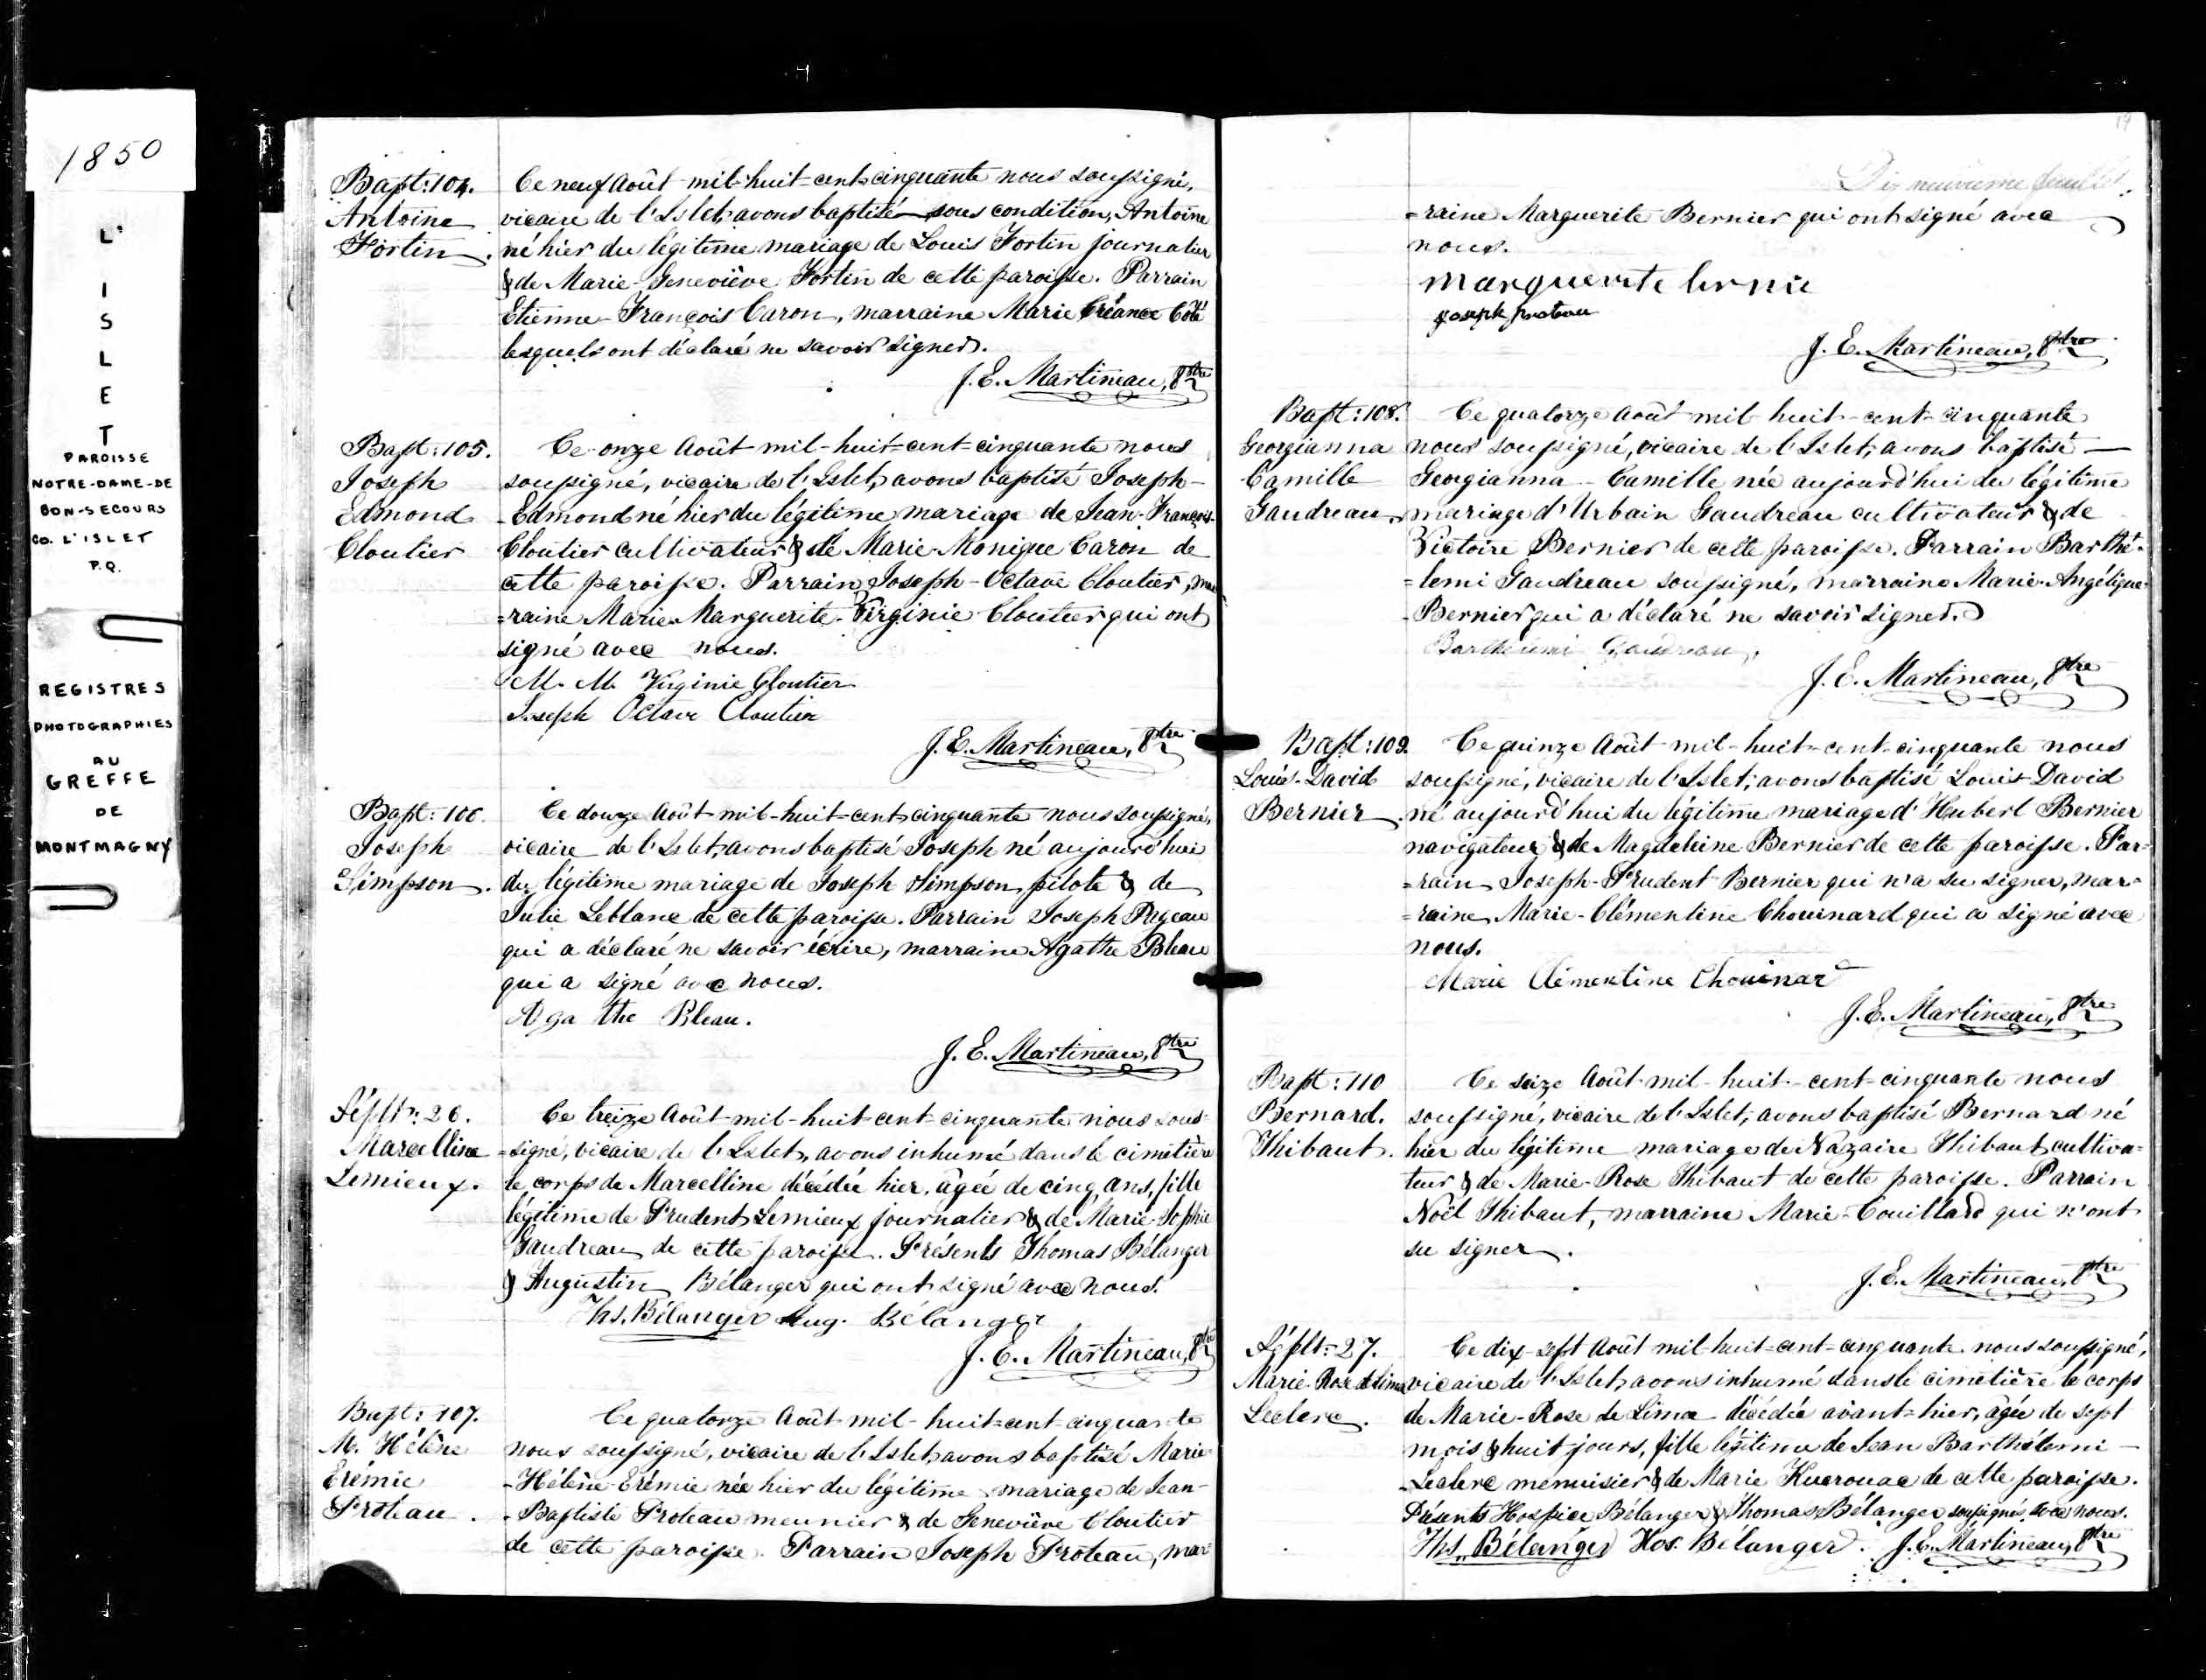 1850
L'
I
S
L
E
T
PAROISSE
NOTRE-DAME-DE
BON-SECOURS
Co. L'ISLET
P.Q.
REGISTRES
PHOTOGRAPHIES
AU
GREFFE
DE
MONTMAGNY
Bapt: 104.
Antoine
Fortin.
Ce neuf Août mil-huit-cent-cinquante nous soussigné,
vicaire de l'Islet, avons baptisé sous condition, Antoine
né hier du légitime mariage de Louis Fortin journalier
& de Marie-Geneviève Fortin de cette paroisse. Parrain
Etienne-François Caron, marraine Marie Côté
lesquels ont déclaré ne savoir signer.
J. E. Martineau, Ptre
Bapt: 105.
Joseph
Edmond
Cloutier
Ce onze Août mil-huit-cent-cinquante nous
soussigné, vicaire de l'Islet, avons baptisé Joseph-
-Edmond né hier du légitime mariage de Jean-François-
Cloutier cultivateur & de Marie-Monique Caron de
cette paroisse. Parrain Joseph-Octave Cloutier, mar
=raine Marie-Marguerite-Virginie Cloutier qui ont
signé avec nous.
M. M. Virginie Cloutier
Joseph Octave Cloutier
J. E. Martineau, Ptre
Bapt: 106.
Joseph
Simpson.
Ce douze Août mil-huit-cent-cinquante nous soussigné,
vicaire de l'Islet, avons baptisé Joseph né aujourd'hui
du légitime mariage de Joseph Simpson pilote & de
Julie Leblanc de cette paroisse. Parrain Joseph Pageau
qui a déclaré ne savoir écrire, marraine Agathe Bleau
qui a signé avec nous.
Aga the Bleau.
J. E. Martineau, Ptre
Séplt: 26.
Marcelline
Lemieux.
Ce treize Août mil-huit-cent-cinquante nous sous-
=signé, vicaire de l'Islet, avons inhumé dans le cimetière
le corps de Marcelline décédée hier, âgée de cinq ans, fille
légitime de Prudent Lemieux journalier & de Marie-Sophie
Gaudreau de cette paroisse. Présents Thomas Bélanger
& Augustin Bélanger qui ont signé avec nous.
Ths. Bélanger Aug. Bélanger
J. E. Martineau, Ptre
Bapt: 107.
M. Hélène
Erémie
Proteau.
Ce quatorze Août mil-huit-cent-cinquante
nous soussigné, vicaire de l'Islet, avons baptisé Marie
-Hélène-Erémie née hier du légitime mariage de Jean-
-Baptiste Proteau meunier & de Geneviève Cloutier
de cette paroisse. Parrain Joseph Proteau, mar
19
Dix neuvième feuillet.
=raine Marguerite Bernier qui ont signé avec
nous.
marguerite bernie
joseph proteau
J. E. Martineau, Ptre
Bapt: 108.
Georgianna
Camille
Gaudreau.
Ce quatorze Août mil huit-cent-cinquante
nous soussigné, vicaire de l'Islet, avons baptisé —
Georgianna-Camille née aujourd'hui du légitime
mariage d'Urbain Gaudreau cultivateur & de
Victoire Bernier de cette paroisse. Parrain Barthé-
=lemi Gaudreau soussigné, marraine Marie-Angélique-
-Bernier qui a déclaré ne savoir signer.
Barthelemi Gaudreau
J. E. Martineau, Ptre
Bapt: 109.
Louis-David
Bernier.
Ce quinze Août mil-huit-cent-cinquante nous
soussigné, vicaire de l'Islet, avons baptisé Louis-David
né aujourd'hui du légitime mariage d'Hubert Bernier
navigateur & de Magdeleine Bernier de cette paroisse. Par=
=rain Joseph-Prudent Bernier qui n'a su signer, mar=
=raine Marie-Clémentine Chouinard qui a signé avec
nous.
Marie Clémentine Chouinard
J. E. Martineau, Ptre
Bapt: 110
Bernard.
Thibaut.
Ce seize Août mil-huit-cent-cinquante nous
soussigné, vicaire de l'Islet, avons baptisé Bernard né
hier du légitime mariage de Nazaire Thibaut cultiva=
teur & de Marie-Rose Thibaut de cette paroisse. Parrain
Noël Thibaut, marraine Marie-Couillard qui n'ont
su signer.
J. E. Martineau, Ptre
Séplt: 27.
Marie-Rose de Lima
Leclerc.
Ce dix-sept Août mil-huit-cent-cinquante nous soussigné,
vicaire de l'Islet, avons inhumé dans le cimetière le corps
de Marie-Rose de Lima décédée avant-hier, âgée de sept
mois & huit jours, fille légitime de Jean Barthélemi —
-Leclerc menuisier & de Marie Kuerouac de cette paroisse.
Présents Hospice Bélanger & Thomas Bélanger soussignés avec nous.
Ths. Bélanger Hos. Bélanger. J. E. Martineau, Ptre